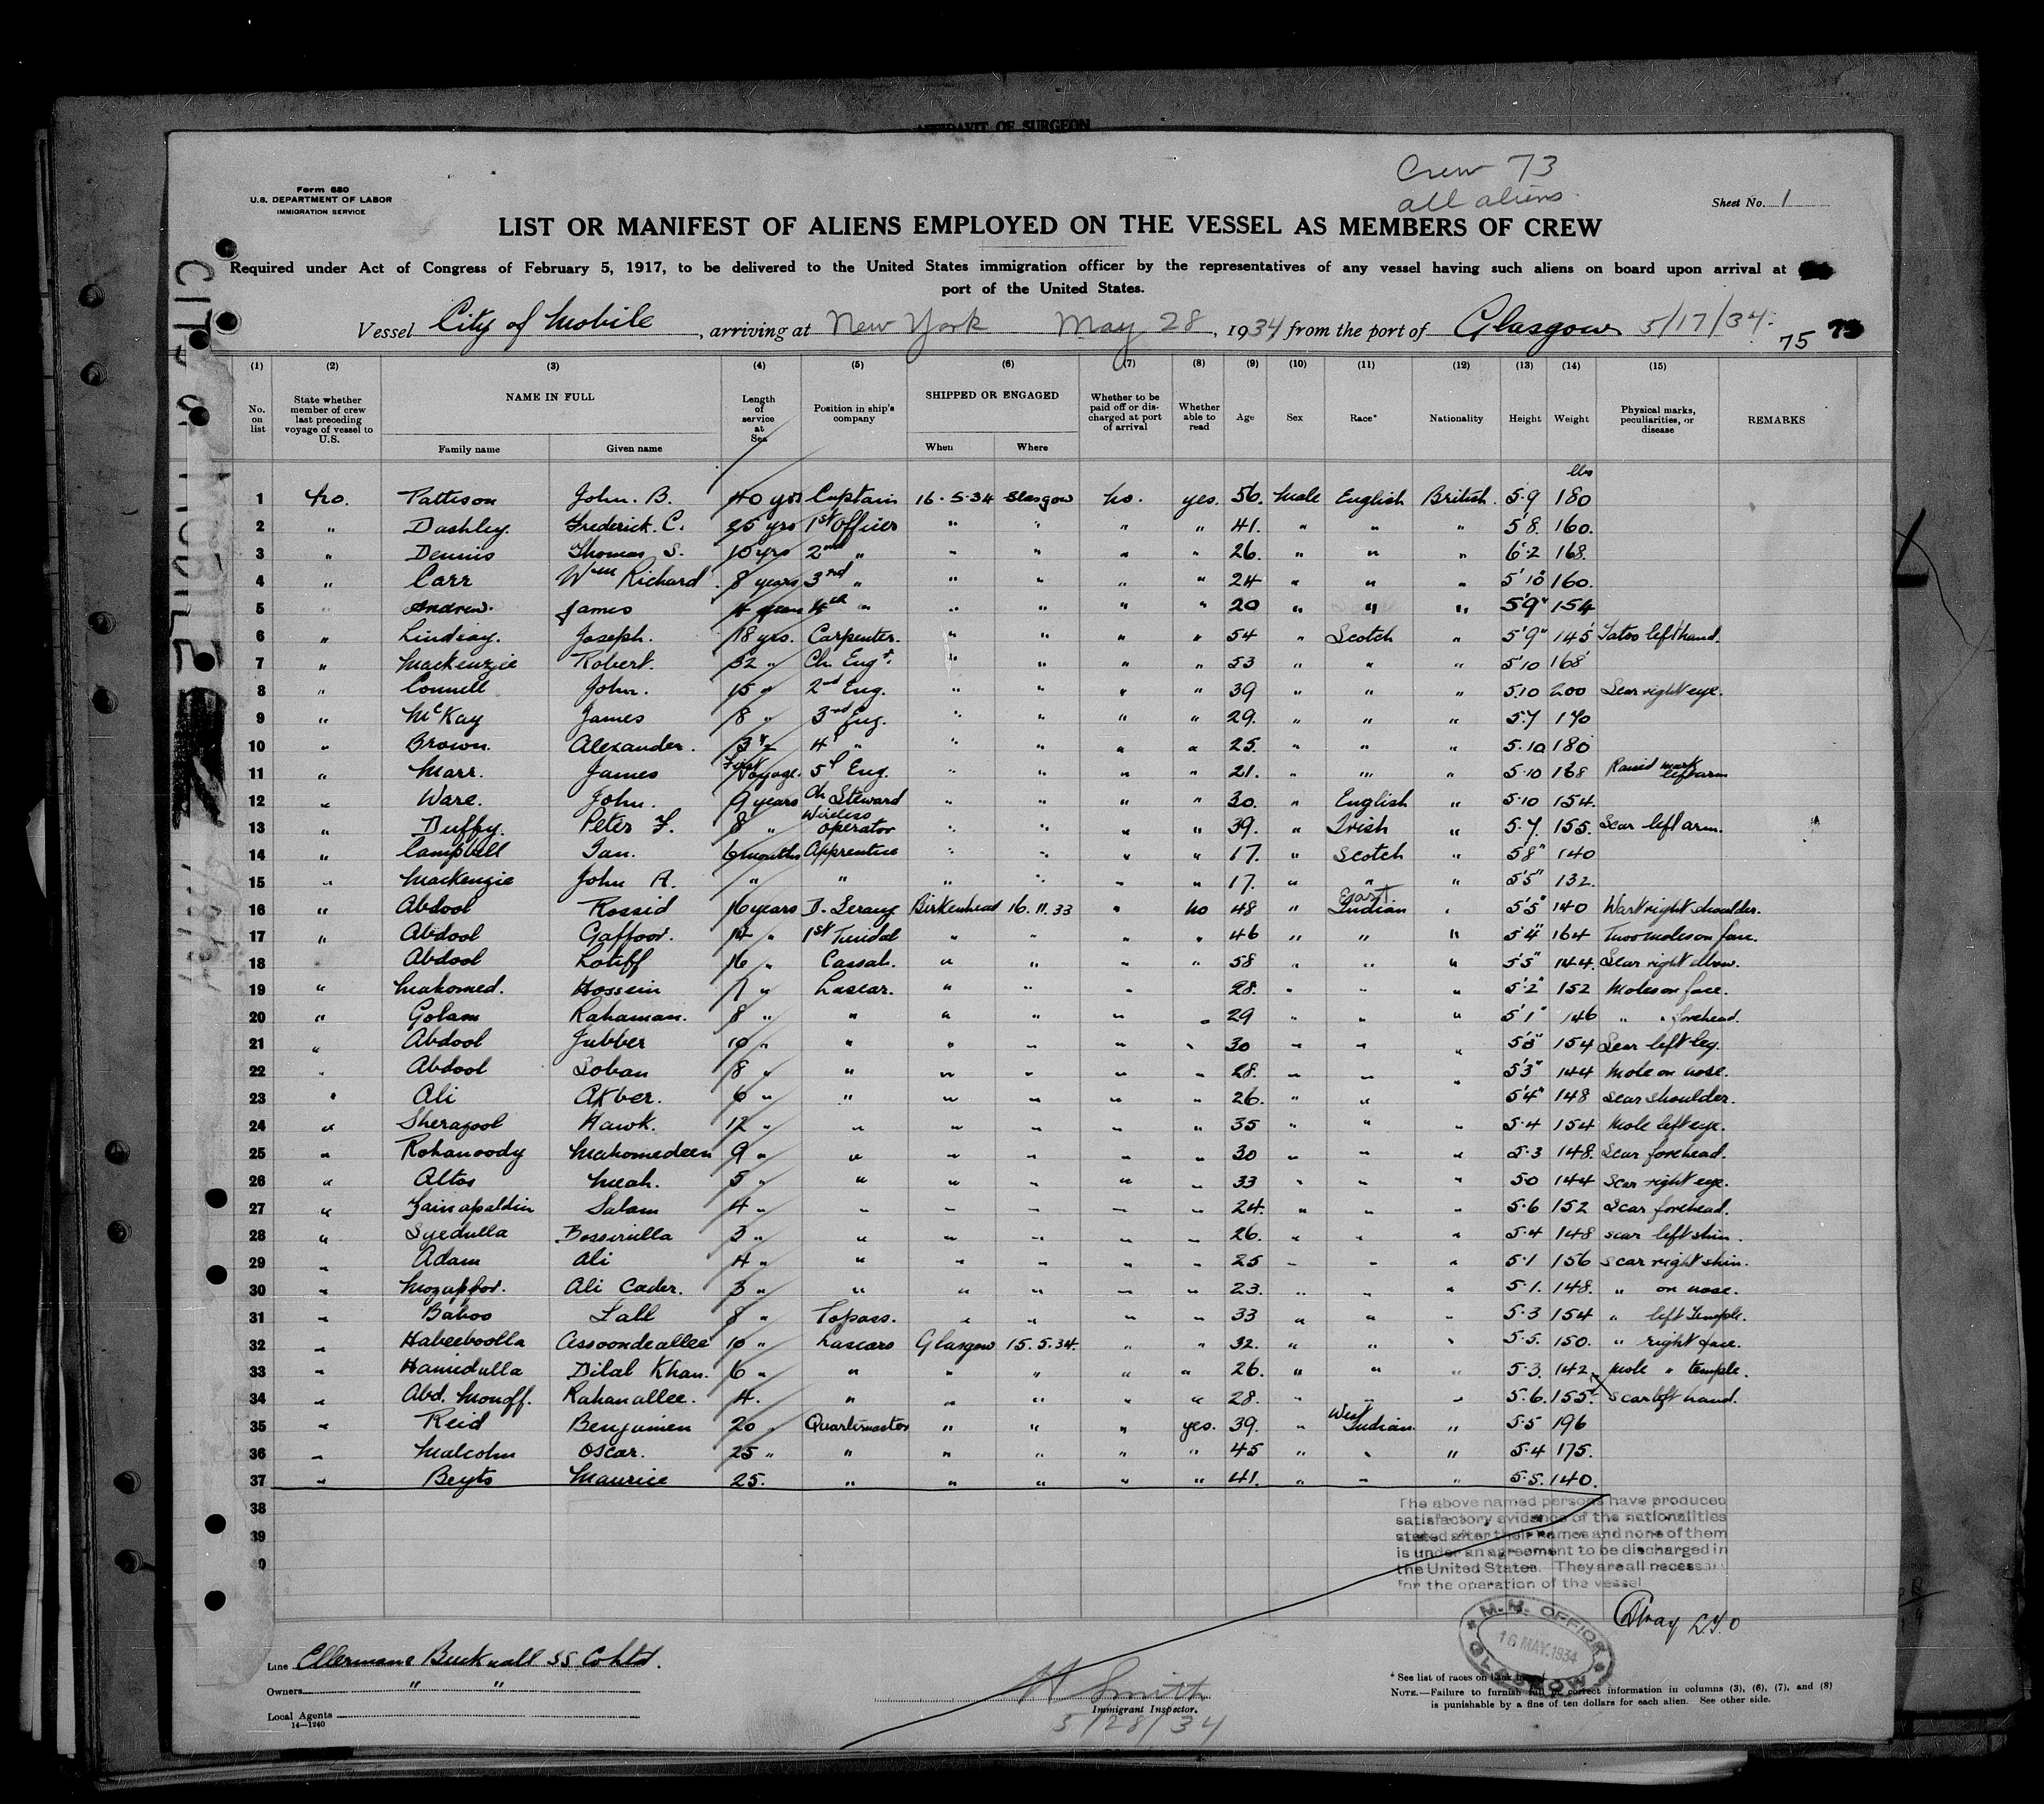 AFFIDAVIT OF SURGEON
Crew 73
all aliens
Form 680
U.S. DEPARTMENT OF LABOR
IMMIGRATION SERVICE
Sheet No. 1
LIST OR MANIFEST OF ALIENS EMPLOYED ON THE VESSEL AS MEMBERS OF CREW
Required under Act of Congress of February 5, 1917, to be delivered to the United States immigration officer by the representatives of any vessel having such aliens on board upon arrival at
port of the United States.
Vessel City of Mobile, arriving at New York May 28, 1934 from the port of Glasgow 5/17/34.
75
(1) (2) (3) (4) (5) (6) (7) (8) (9) (10) (11) (12) (13) (14) (15)
No. on list State whether member of crew last preceding voyage of vessel to U.S. NAME IN FULL Family name Given name Length of service at Sea Position in ship's company SHIPPED OR ENGAGED When Where Whether to be paid off or discharged at port of arrival Whether able to read Age Sex Race* Nationality Height Weight Physical marks, peculiarities, or disease REMARKS
lbs
1 No. Pattison John. B. 40 yrs Captain 16.5.34 Glasgow No. yes. 56. Male English British. 5.9 180
2 " Dashley. Frederick. C. 25 yrs 1st Officer " " " " 41. " " " 5'8. 160.
3 " Dennis Thomas S. 10 yrs 2nd " " " " " 26. " " " 6'.2 168.
4 " Carr Wm Richard. 8 years 3rd " " " " " 24 " " " 5'10 160.
5 " Andrew. James 4 years 4th " " " " " 20 " " " 5'9" 154
6 " Lindsay. Joseph. 18 yrs. Carpenter. " " " " 54 " Scotch " 5'9" 145 Tatoo left hand.
7 " Mackenzie Robert. 32 " Ch. Engr. " " " " 53 " " " 5'10 168
8 " Connell John. 15 " 2nd Eng. " " " " 39 " " " 5.10 200 Scar right eye.
9 " McKay James 8 " 3rd Eng. " " " " 29. " " " 5.7 170
10 " Brown. Alexander. 4 " " " " " 25. " " " 5.10 180
11 " Marr. James First Voyage. 5 Eng. " " " " 21. " " " 5.10 168 Raised mark left arm
12 " Ware. John. 9 years Ch Steward " " " " 30. " English " 5.10 154.
13 " Duffy. Peter F. 8 " Wireless operator " " " " 39. " Irish " 5.7. 155. Scar left arm.
14 " Campbell Ian. 6 months Apprentice " " " " 17. " Scotch " 5'8" 140
15 " Mackenzie John A. " " " " " " 17. " " " 5'5" 132.
16 " Abdool Rossid 16 years D. Serang Birkenhead 16.11.33 " No 48 " East Indian " 5'5" 140 Wart right shoulder.
17 " Abdool Gaffoor. 14 " 1st Tindal " " " " 46 " " " 5'4" 164 Two moles on face.
18 " Abdool Lotiff 16 " Cassab. " " " " 58 " " " 5'5" 144. Scar right elbow.
19 " Mahomed. Hossein 7 " Lascar. " " " 28. " " " 5'2" 152 Moles on face.
20 " Golam Rahaman. 8 " " " " " " 29 " " " 5'1" 146 " " forehead.
21 " Abdool Jubber 10 " " " " " " 30 " " " 154 Scar left leg.
22 " Abdool Soban 8 " " " " " " 28. " " " 5'3" 144 Mole on nose.
23 " Ali Akber. 6 " " " " " " 26. " " " 5'4" 148 Scar shoulder.
24 " Sheragool Hawk. 12 " " " " " " 35 " " " 5.4 154 Mole left eye.
25 " Rohanoody Mahomedeen 9 " " " " " " 30 " " " 5.3 148. Scar forehead.
26 " Altas Meah. 5 " " " " " " 33 " " " 5.0 144 Scar right eye.
27 " Zainapaldin Salam 4 " " " " " " 24. " " " 5.6 152 Scar forehead.
28 " Syedulla Bossirulla 3 " " " " " " 26. " " " 5.4 148 Scar left shin.
29 " Adam Ali 4 " " " " " " 25 " " " 5.1 156 Scar right shin.
30 " Mozuffor. Ali Cader. 3 " " " " " " 23. " " " 5.1. 148. " on nose.
31 " Baboo Lall 8 " Topass. " " " " 33 " " " 5.3 154 " left Temple.
32 " Habeeboolla Assoondeallee 10 " Lascars Glasgow 15.5.34. " " 32. " " " 5.5. 150. " right face.
33 " Hamidulla Dilal Khan. 6 " " " " " " 26. " " " 5.3. 142. Mole " temple.
34 " Abd. Monoff. Rahanallee. 4. " " " " " 28. " " " 5.6. 155. Scar left hand.
35 " Reid Benjamien 20 " Quartermaster " " " yes. 39. " West Indian. " 5.5 196
36 " Malcolm Oscar. 25 " " " " " " 45 " " " 5.4 175.
37 " Beyts Maurice 25. " " " " " 41. " " " 5.5. 140.
38
39
40
The above named persons have produced
satisfactory evidence of the nationalities
stated after their names and none of them
is under an agreement to be discharged in
the United States. They are all necessary
for the operation of the vessel
M.M. OFFICE
16 MAY.1934
GLASGOW
Line Ellermans Bucknall SS Co Ltd.
Owners " "
Local Agents
14—1240
H Smith
Immigrant Inspector.
5/28/34
* See list of races on back hereof.
NOTE.—Failure to furnish full or correct information in columns (3), (6), (7), and (8)
is punishable by a fine of ten dollars for each alien. See other side.